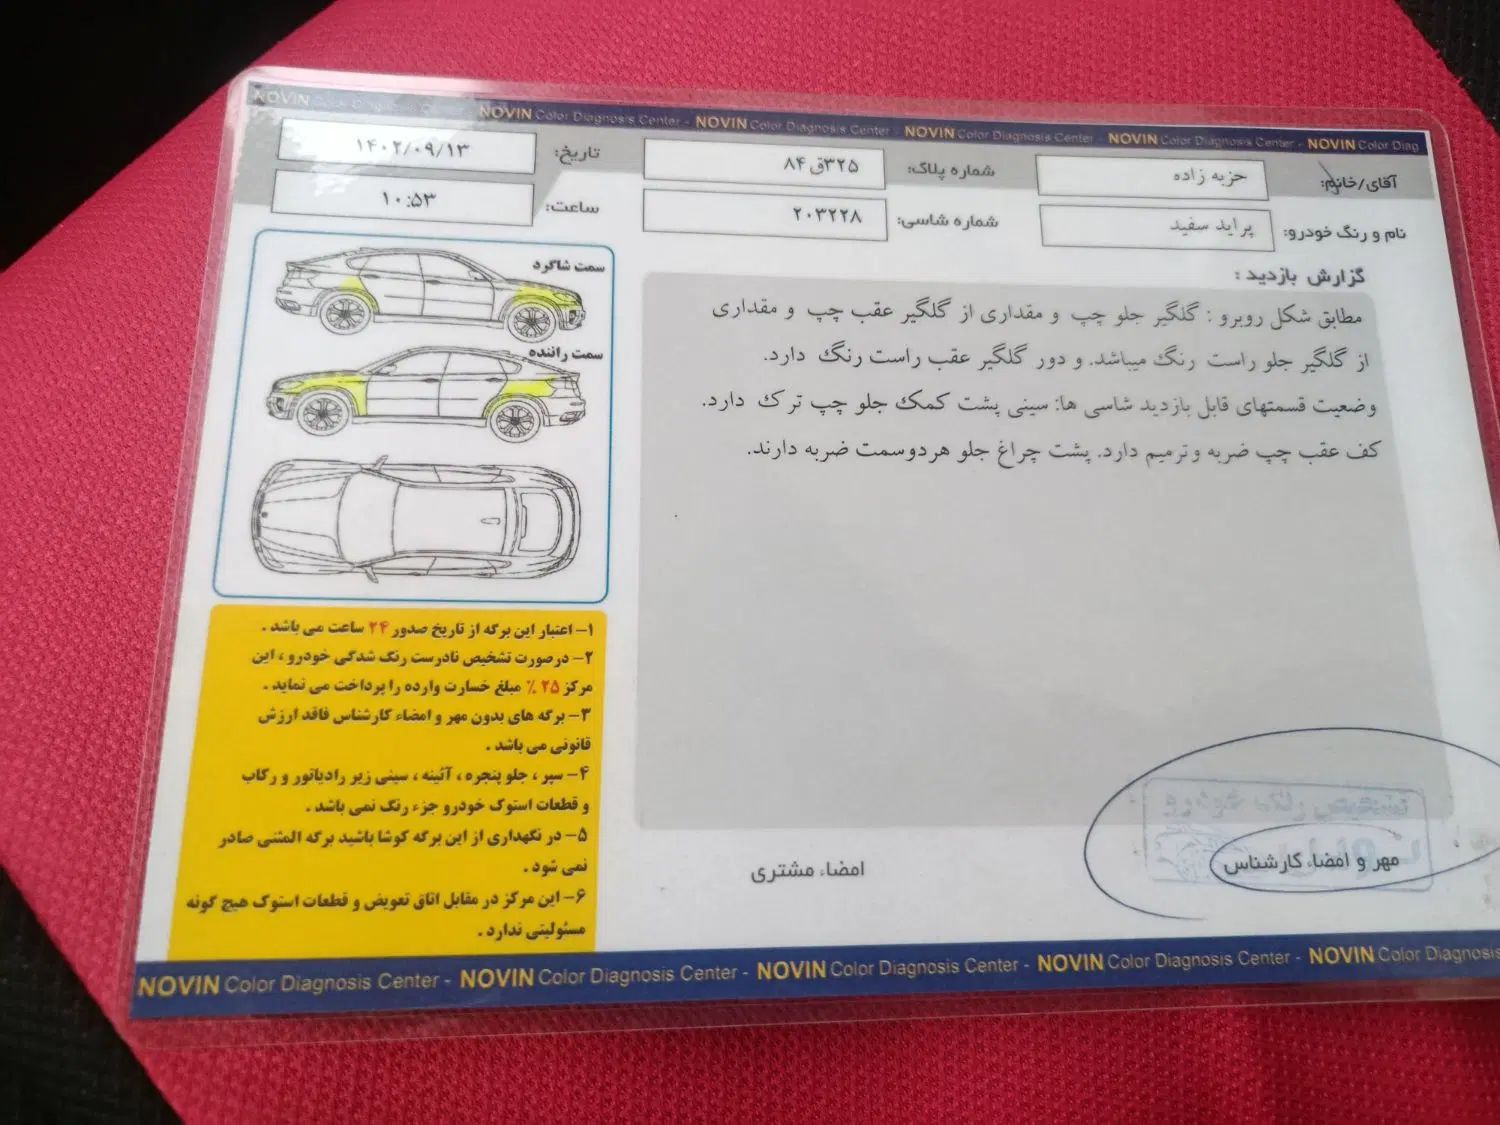 NOVIN Color Diagnosis Center - NOVIN Color Diagnosis Center - NOVIN Color Diagnosis Center - NOVIN Color Diagnosis Center - NOVIN Color Diagnosis Center - NOVIN Color Diag
آقای/خانم: حزبه زاده
شماره پلاک: ۳۲۵ق۸۴
تاریخ: ۱۴۰۲/۰۹/۱۳
نام و رنگ خودرو: پراید سفید
شماره شاسی: ۲۰۳۲۲۸
ساعت: ۱۰:۵۳
گزارش بازدید :
مطابق شکل روبرو : گلگیر جلو چپ و مقداری از گلگیر عقب چپ و مقداری
از گلگیر جلو راست رنگ میباشد. و دور گلگیر عقب راست رنگ دارد.
وضعیت قسمتهای قابل بازدید شاسی ها: سینی پشت کمک جلو چپ ترک دارد.
کف عقب چپ ضربه و ترمیم دارد. پشت چراغ جلو هردوسمت ضربه دارند.
سمت شاگرد
سمت راننده
۱- اعتبار این برگه از تاریخ صدور ۲۴ ساعت می باشد .
۲- درصورت تشخیص نادرست رنگ شدگی خودرو ، این
مرکز ۲۵ ٪ مبلغ خسارت وارده را پرداخت می نماید .
۳- برگه های بدون مهر و امضاء کارشناس فاقد ارزش
قانونی می باشد .
۴- سپر ، جلو پنجره ، آئینه ، سینی زیر رادیاتور و رکاب
و قطعات استوک خودرو جزء رنگ نمی باشد .
۵- در نگهداری از این برگه کوشا باشید برگه المثنی صادر
نمی شود .
۶- این مرکز در مقابل اتاق تعویض و قطعات استوک هیچ گونه
مسئولیتی ندارد .
تشخیص رنگ خودرو
مهر و امضاء کارشناس
امضاء مشتری
NOVIN Color Diagnosis Center - NOVIN Color Diagnosis Center - NOVIN Color Diagnosis Center - NOVIN Color Diagnosis Center - NOVIN Color Diagnosis